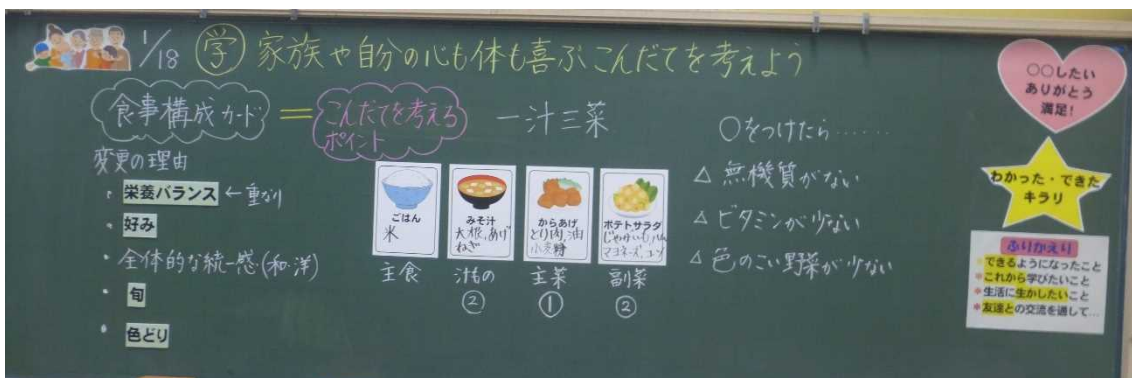 1/18 学 家族や自分の心も体も喜ぶこんだてを考えよう
食事構成カード = こんだてを考える
ポイント
一汁三菜
変更の理由
・栄養バランス ← 重なり
・好み
・全体的な統一感(和・洋)
・旬
・色どり
ごはん
米
主食
みそ汁
大根、あげ
ねぎ
汁もの
②
からあげ
とり肉、油
小麦粉
主菜
①
ポテトサラダ
じゃがいも、ハム
マヨネーズ、コーン
副菜
②
○をつけたら……
△ 無機質がない
△ ビタミンが少ない
△ 色のこい野菜が少ない
○○したい
ありがとう
満足!
わかった・できた
キラリ
ふりかえり
*できるようになったこと
*これから学びたいこと
*生活に生かしたいこと
*友達との交流を通して…